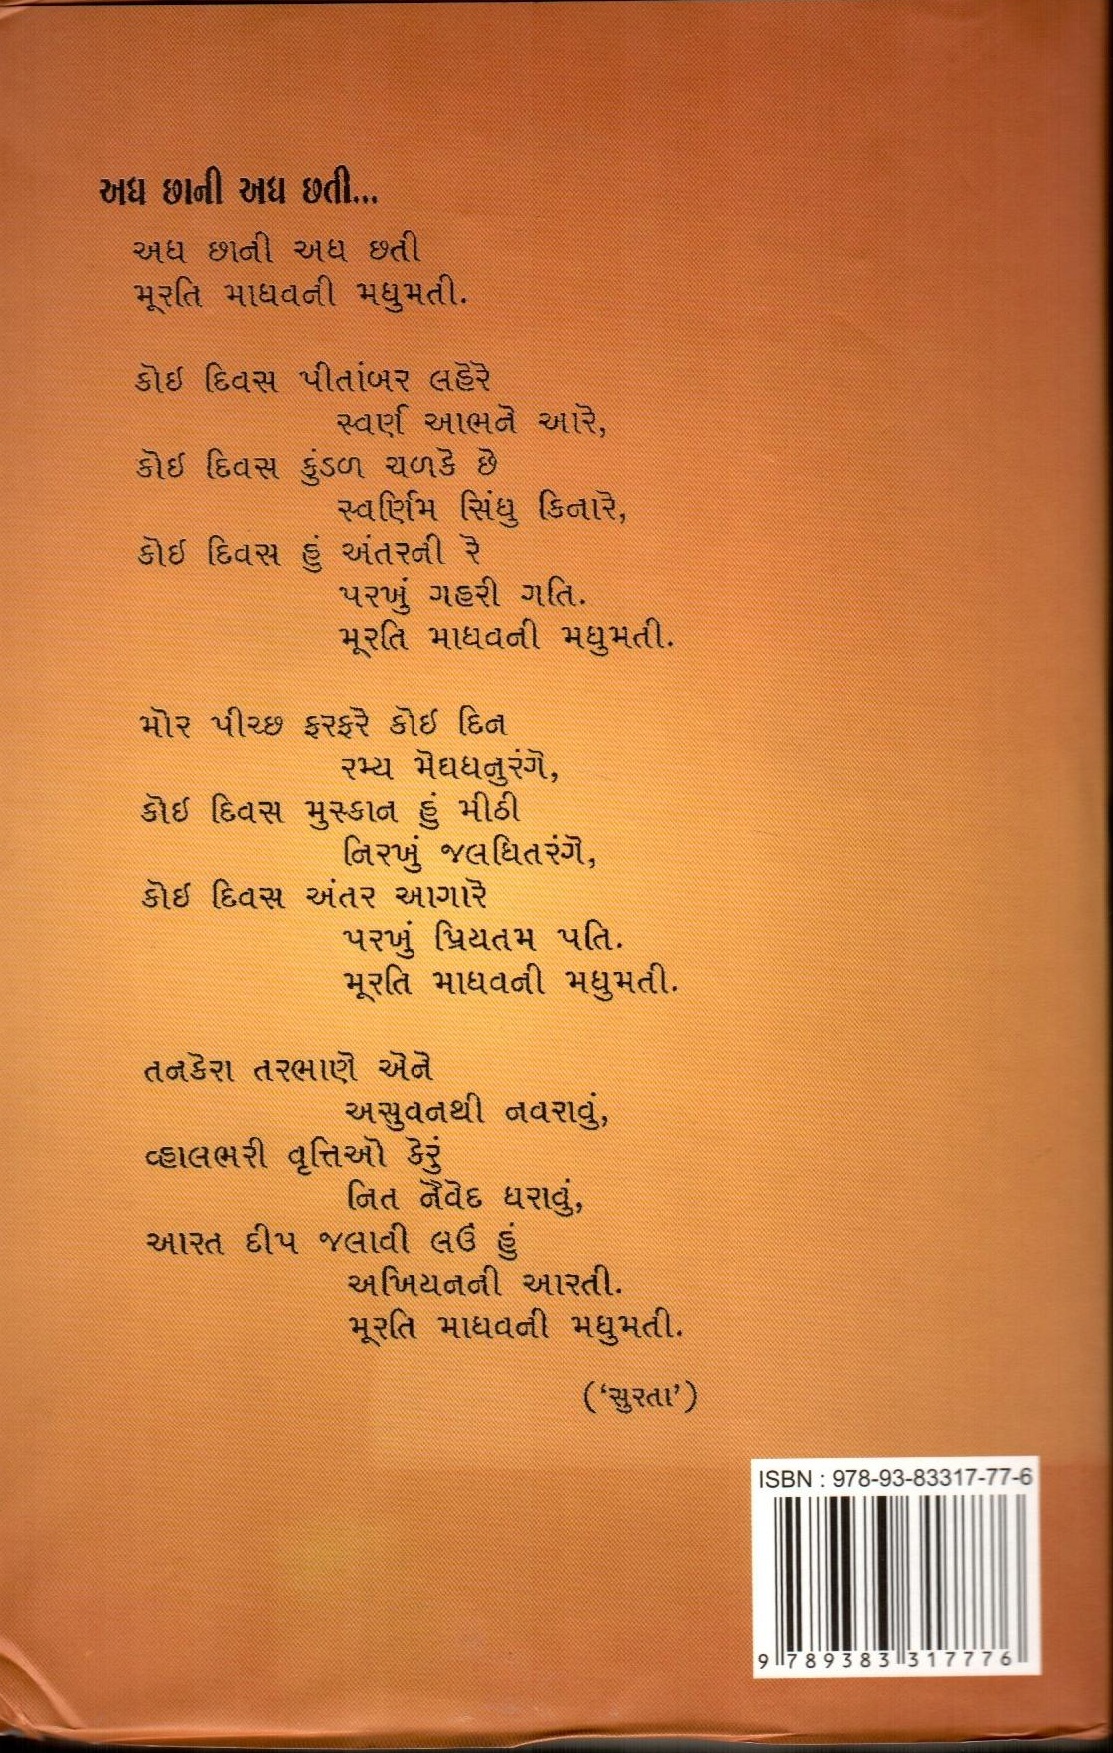 અધ છાની અધ છતી...
અધ છાની અધ છતી
મૂરતિ માધવની મધુમતી.
કોઇ દિવસ પીતાંબર લહેરે
સ્વર્ણ આભને આરે,
કોઇ દિવસ કુંડળ ચળકે છે
સ્વર્ણિમ સિંધુ કિનારે,
કોઇ દિવસ હું અંતરની રે
પરખું ગહરી ગતિ.
મૂરતિ માધવની મધુમતી.
મોર પીચ્છ ફરફરે કોઈ દિન
રમ્ય મેઘધનુરંગે,
કોઇ દિવસ મુસ્કાન હું મીઠી
નિરખું જલધિતરંગે,
કોઇ દિવસ અંતર આગારે
પરખું પ્રિયતમ પતિ.
મૂરતિ માધવની મધુમતી.
તનકેરા તરભાણે એને
અસુવનથી નવરાવું,
વ્હાલભરી વૃત્તિઓ કેરું
નિત નૈવેદ ધરાવું,
આરત દીપ જલાવી લઉં હું
અખિયનની આરતી.
મૂરતિ માધવની મધુમતી.
(‘સુરતા’)
ISBN : 978-93-83317-77-6
9 789383 317776